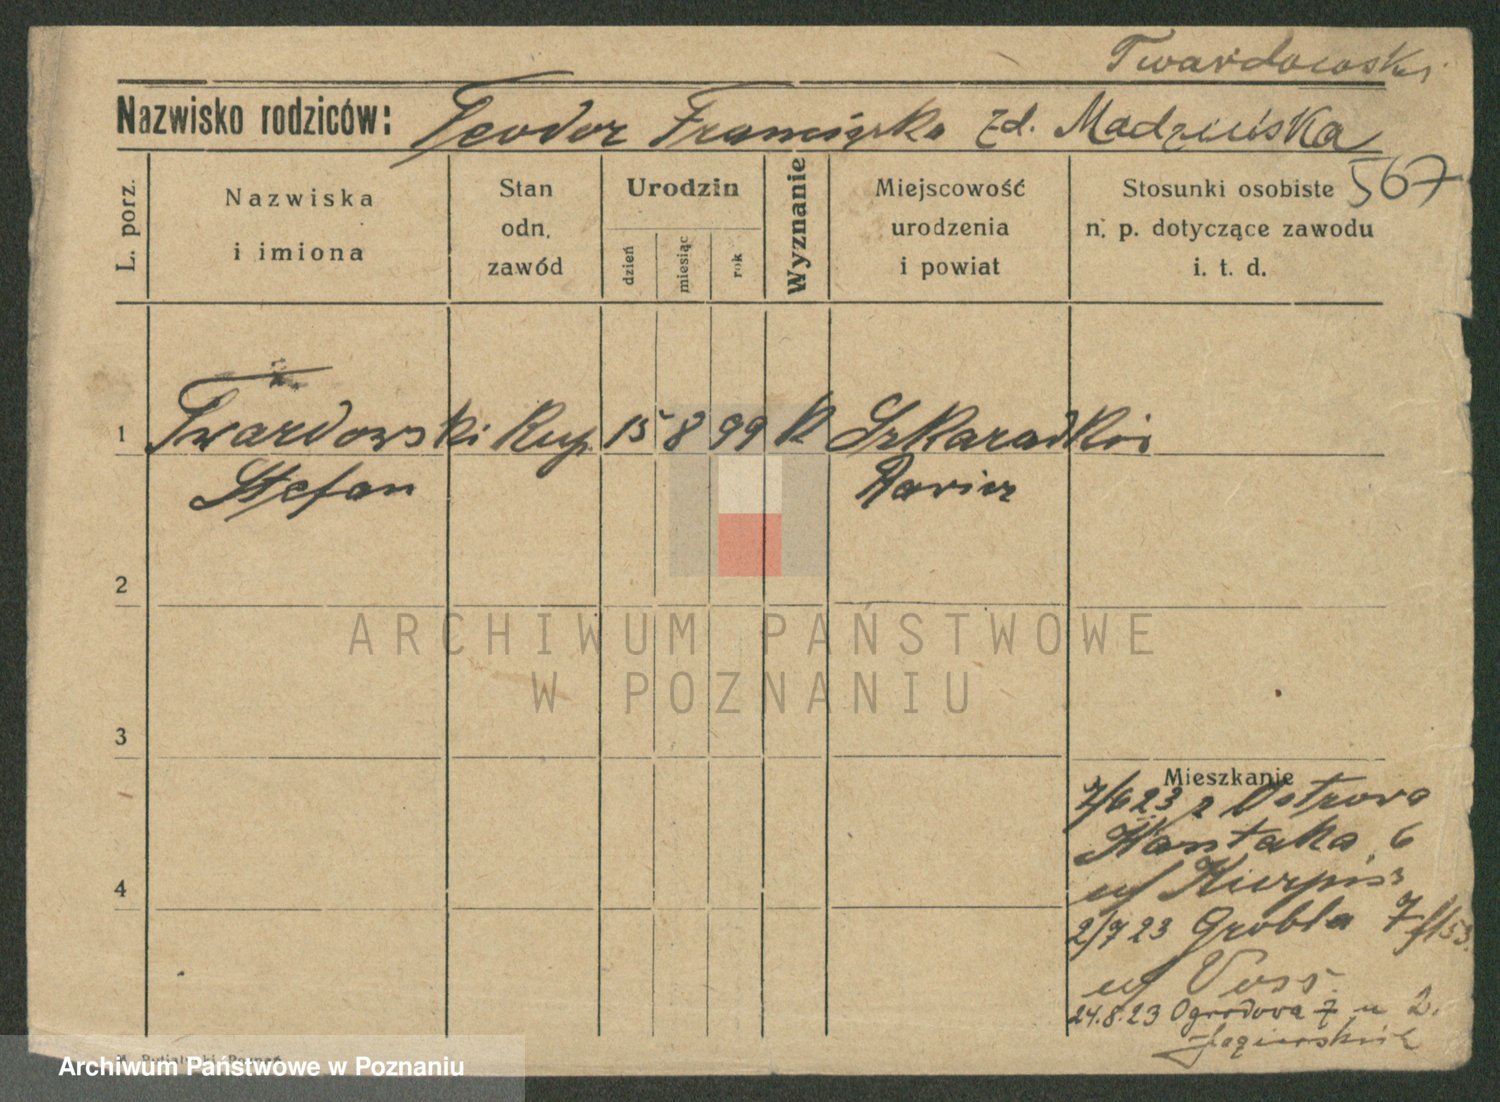 Twardowski
Nazwisko rodziców: Teodor Franciszka zd. Madzińska
567
L. porz.
Nazwiska i imiona
Stan odn. zawód
Urodzin
dzień
miesiąc
rok
Wyznanie
Miejscowość urodzenia i powiat
Stosunki osobiste n. p. dotyczące zawodu i. t. d.
1 Twardowski Kup. 15 8 99 k Szkaradków
Stefan Rawicz
2
3
4
Mieszkanie
7/6 23 z Ostrowa
Kantaka 6
2/7 23 Grobla 7
u/ Voss
24.8.23 Ogrodowa 7 u
ARCHIWUM PAŃSTWOWE
W POZNANIU
Archiwum Państwowe w Poznaniu